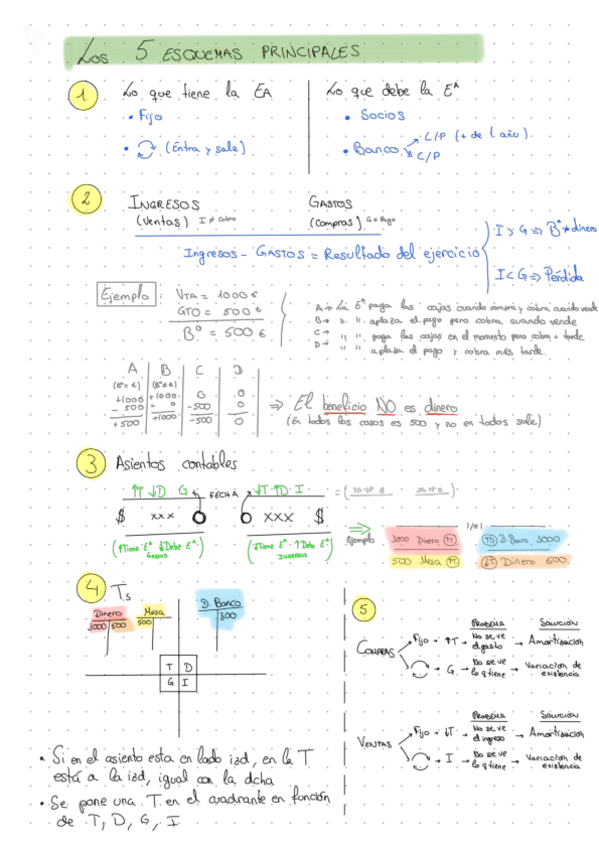 Los 5 ESQUEMAS PRINCIPALES
1
Lo que tiene la EA
• Fijo
• (Entra y sale)
Lo que debe la Eª
• Socios
• Banco
L/P (+ de 1 año).
C/P
2
INGRESOS
(ventas) I ≠ Cobro
GASTOS
(compras) G ≠ Pago
Ingresos - GASTOS = Resultado del ejercicio
I > G => Bº ≠ dinero
I < G => Pérdida
Ejemplo:
VTA = 1000 €
GTO = 500 €
Bº = 500 €
A → La Eª paga las cajas cuando compra y cobra cuando vende
B → " " aplaza el pago pero cobra cuando vende
C → " " paga las cajas en el momento pero cobra + tarde
D → " " aplaza el pago y cobra más tarde.
A B C D
+1000 +1000 0 0
- 500 0 -500 0
+500 -500 0
=> El beneficio NO es dinero
(En todos los casos es 500 y no en todos sale)
3 Asientos contables
↑T ↓D G FECHA ↓T ↑D I
$ xxx O O xxx $
(↑Tiene Eª ↓Debe Eª)
GASTOS
(↓Tiene Eª ↑Debe Eª)
INGRESOS
Ejemplo
3000 Dinero (↑T) (↑D) D. Banco 3000
500 Mesa (↑T) (↓T) Dinero 500
4 Ts
Dinero
3000 500
Mesa
500
D. Banco
T D
G I
• Si en el asiento esta en lado izd, en la T
está a la izd, igual con la dcha
• Se pone una T en el cuadrante en función
de T, D, G, I
5
PROBLEMA SOLUCIÓN
COMPRAS
Fijo → ↑T → No se ve el gasto → Amortización
→ G → No se ve lo q tiene → Variación de existencia
PROBLEMA SOLUCIÓN
VENTAS
Fijo → ↓T → No se ve el ingreso → Amortización
→ I → No se ve lo q tiene → Variación de existencia